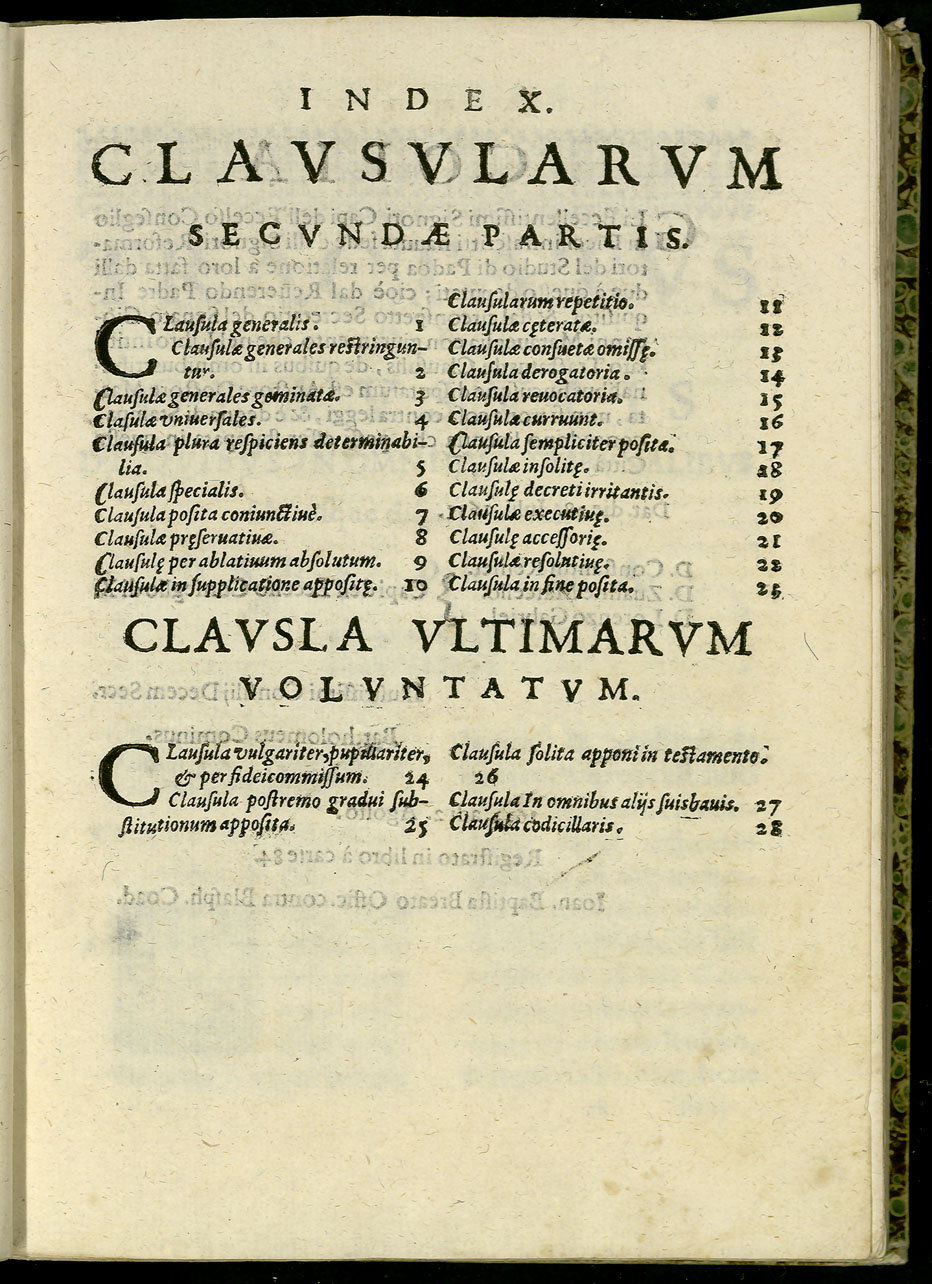 INDEX.
CLAVSVLARVM
SECVNDÆ PARTIS.
CLauſula generalis. 1
Clauſulæ generales reſtringun-
tur. 2
Clauſulæ generales geminatæ. 3
Claſulæ vniuerſales. 4
Clauſula plura reſpiciens determinabi-
lia. 5
Clauſula ſpecialis. 6
Clauſula poſita coniunctiuè. 7
Clauſulæ pręſeruatiuæ. 8
Clauſulę per ablatiuum abſolutum. 9
Clauſulæ in ſupplicatione appoſitę. 10
Clauſularum repetitio. 11
Clauſulæ cęteratæ. 12
Clauſulæ conſuetæ omiſſę. 13
Clauſula derogatoria. 14
Clauſula reuocatoria. 15
Clauſulæ curruunt. 16
Clauſula ſempliciter poſita. 17
Clauſulæ inſolitę. 18
Clauſulę decreti irritantis. 19
Clauſulæ executiuę. 20
Clauſulę acceſſorię. 21
Clauſulæ reſolutiuę. 22
Clauſula in fine poſita. 23
CLAVSLA VLTIMARVM
VOLVNTATVM.
CLauſula vulgariter, pupillariter,
& per fideicommiſſum. 24
Clauſula poſtremo gradui ſub-
ſtitutionum appoſita. 25
Clauſula ſolita apponi in teſtamento.
26
Clauſula In omnibus alijs ſuisbauis. 27
Clauſula codicillaris. 28